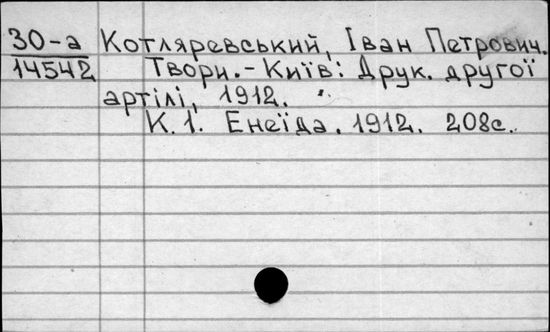 30-а Котляревський, Іван Петрович.
14542 Твори.-Київ: Друк. другої
артілі, 1912.
К.1. Енеїда. 1912. 208с.